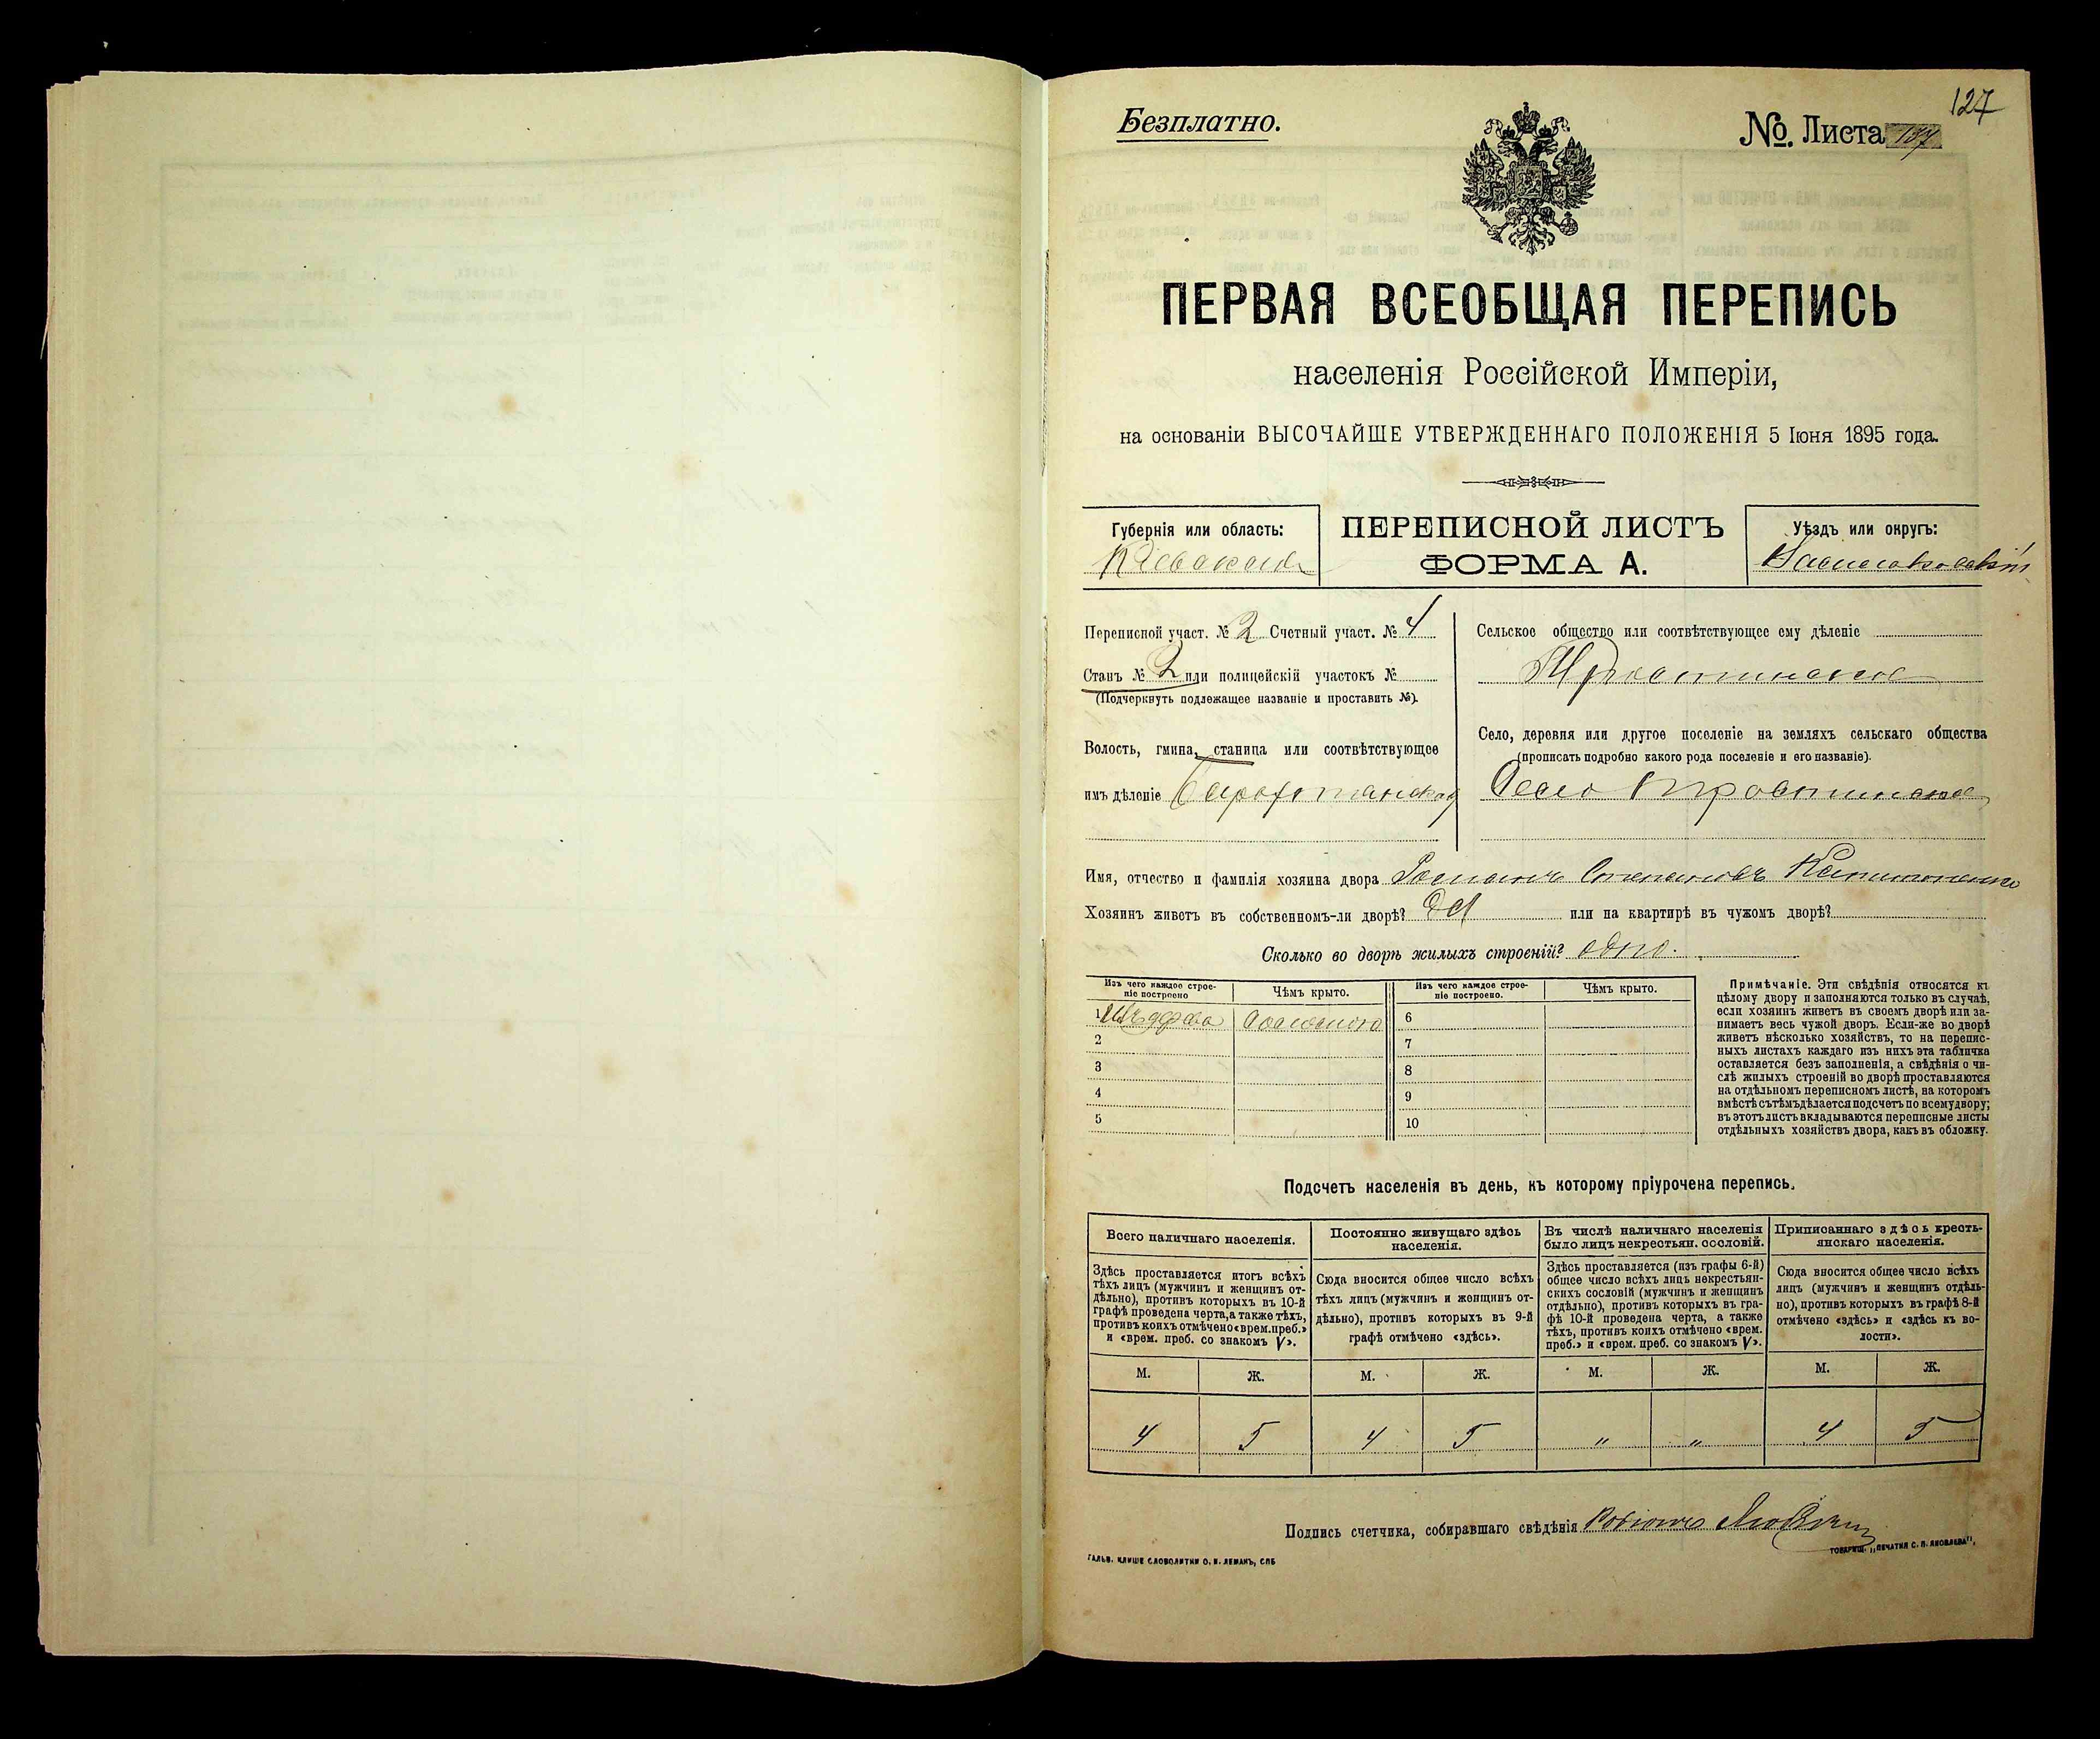 127
Безплатно.
№. Листа 127
ПЕРВАЯ ВСЕОБЩАЯ ПЕРЕПИСЬ
населенія Россійской Имперіи,
на основаніи ВЫСОЧАЙШЕ УТВЕРЖДЕННАГО ПОЛОЖЕНІЯ 5 Іюня 1895 года.
Губернія или область:
Кіевская
ПЕРЕПИСНОЙ ЛИСТЪ
ФОРМА А.
Уѣздъ или округъ:
Васильковскій
Переписной участ. № 2 Счетный участ. № 4
Станъ № 2 или полицейскій участокъ №
(Подчеркнуть подлежащее названіе и проставить №).
Волость, гмина, станица или соотвѣтствующее
имъ дѣленіе
Сельское общество или соотвѣтствующее ему дѣленіе
Тростинское
Село, деревня или другое поселеніе на земляхъ сельскаго общества
(прописать подробно какого рода поселеніе и его названіе).
Село Тростинская
Имя, отчество и фамилія хозяина двора Романъ Степановъ
Хозяинъ живетъ въ собственномъ-ли дворѣ? да или на квартирѣ въ чужомъ дворѣ?
Сколько во дворѣ жилыхъ строеній? одно.
Изъ чего каждое строе-
ніе построено
Чѣмъ крыто.
Изъ чего каждое строе-
ніе построено.
Чѣмъ крыто.
1 Изъ дрова Соломою
6
2
7
3
8
4
9
5
10
Примѣчаніе. Эти свѣдѣнія относятся къ
цѣлому двору и заполняются только въ случаѣ,
если хозяинъ живетъ въ своемъ дворѣ или за-
нимаетъ весь чужой дворъ. Если-же во дворѣ
живетъ нѣсколько хозяйствъ, то на перепис-
ныхъ листахъ каждаго изъ нихъ эта табличка
оставляется безъ заполненія, а свѣдѣнія о чи-
слѣ жилыхъ строеній во дворѣ проставляются
на отдѣльномъ переписномъ листѣ, на которомъ
вмѣстѣ съ тѣмъ дѣлается подсчетъ по всему двору;
въ этотъ листъ вкладываются переписные листы
отдѣльныхъ хозяйствъ двора, какъ въ обложку.
Подсчетъ населенія въ день, къ которому пріурочена перепись.
Всего наличнаго населенія.
Здѣсь проставляется итогъ всѣхъ
тѣхъ лицъ (мужчинъ и женщинъ от-
дѣльно), противъ которыхъ въ 10-й
графѣ проведена черта, а также тѣхъ,
противъ коихъ отмѣчено «врем. преб.»
и «врем. преб. со знакомъ V».
Постоянно живущаго здѣсь
населенія.
Сюда вносится общее число всѣхъ
тѣхъ лицъ (мужчинъ и женщинъ от-
дѣльно), противъ которыхъ въ 9-й
графѣ отмѣчено «здѣсь».
Въ числѣ наличнаго населенія
было лицъ некрестьян. сословій.
Здѣсь проставляется (изъ графы 6-й)
общее число всѣхъ лицъ некрестьян-
скихъ сословій (мужчинъ и женщинъ
отдѣльно), противъ которыхъ въ гра-
фѣ 10-й проведена черта, а также
тѣхъ, противъ коихъ отмѣчено «врем.
преб.» и «врем. преб. со знакомъ V».
Приписаннаго здѣсь кресть-
янскаго населенія.
Сюда вносится общее число всѣхъ
лицъ (мужчинъ и женщинъ отдѣль-
но), противъ которыхъ въ графѣ 8-й
отмѣчено «здѣсь» и «здѣсь къ во-
лости».
М. Ж. М. Ж. М. Ж. М. Ж.
4 5 4 5 " " 4 5
Подпись счетчика, собиравшаго свѣдѣнія
ГАЛЬВ. КЛИШЕ СЛОВОЛИТНИ О. И. ЛЕМАНЪ, СПБ
ТОВАРИЩ. „ПЕЧАТНЯ С. П. ЯКОВЛЕВА",